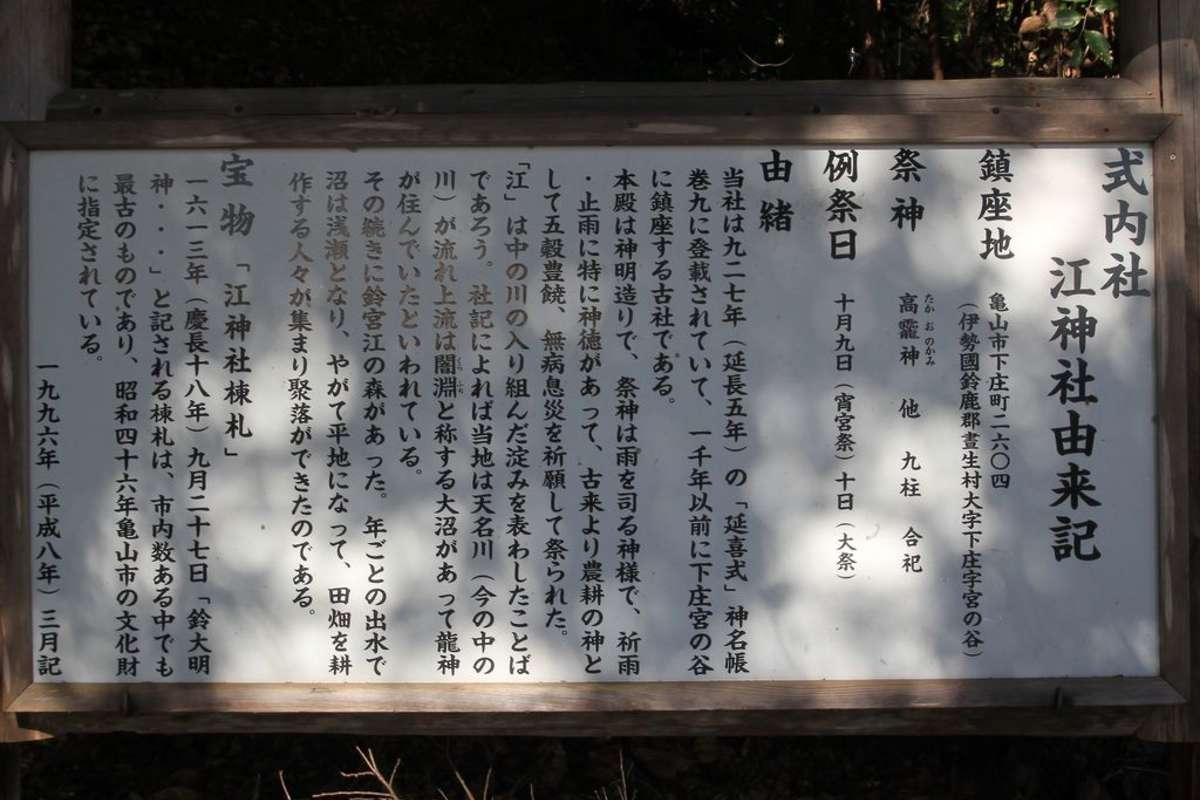 式内社
江神社由来記
鎮座地
亀山市下庄町二六〇四
(伊勢國鈴鹿郡晝生村大字下庄字宮の谷)
祭神
高龗神 他 九柱 合祀
たか おのかみ
例祭日
十月九日(宵宮祭)十日(大祭)
由緒
当社は九二七年(延長五年)の「延喜式」神名帳
巻九に登載されていて、一千年以前に下庄宮の谷
に鎮座する古社である。
本殿は神明造りで、祭神は雨を司る神様で、祈雨
・止雨に特に神徳があって、古来より農耕の神と
して五穀豊饒、無病息災を祈願して祭られた。
「江」は中の川の入り組んだ淀みを表わしたことば
であろう。社記によれば当地は天名川(今の中の
川)が流れ上流は闇淵と称する大沼があって龍神
が住んでいたといわれている。
その続きに鈴宮江の森があった。年ごとの出水で
沼は浅瀬となり、やがて平地になって、田畑を耕
作する人々が集まり聚落ができたのである。
宝物「江神社棟札」
一六一三年(慶長十八年)九月二十七日「鈴大明
神・・・」と記される棟札は、市内数ある中でも
最古のものであり、昭和四十六年亀山市の文化財
に指定されている。
一九九六年(平成八年)三月記